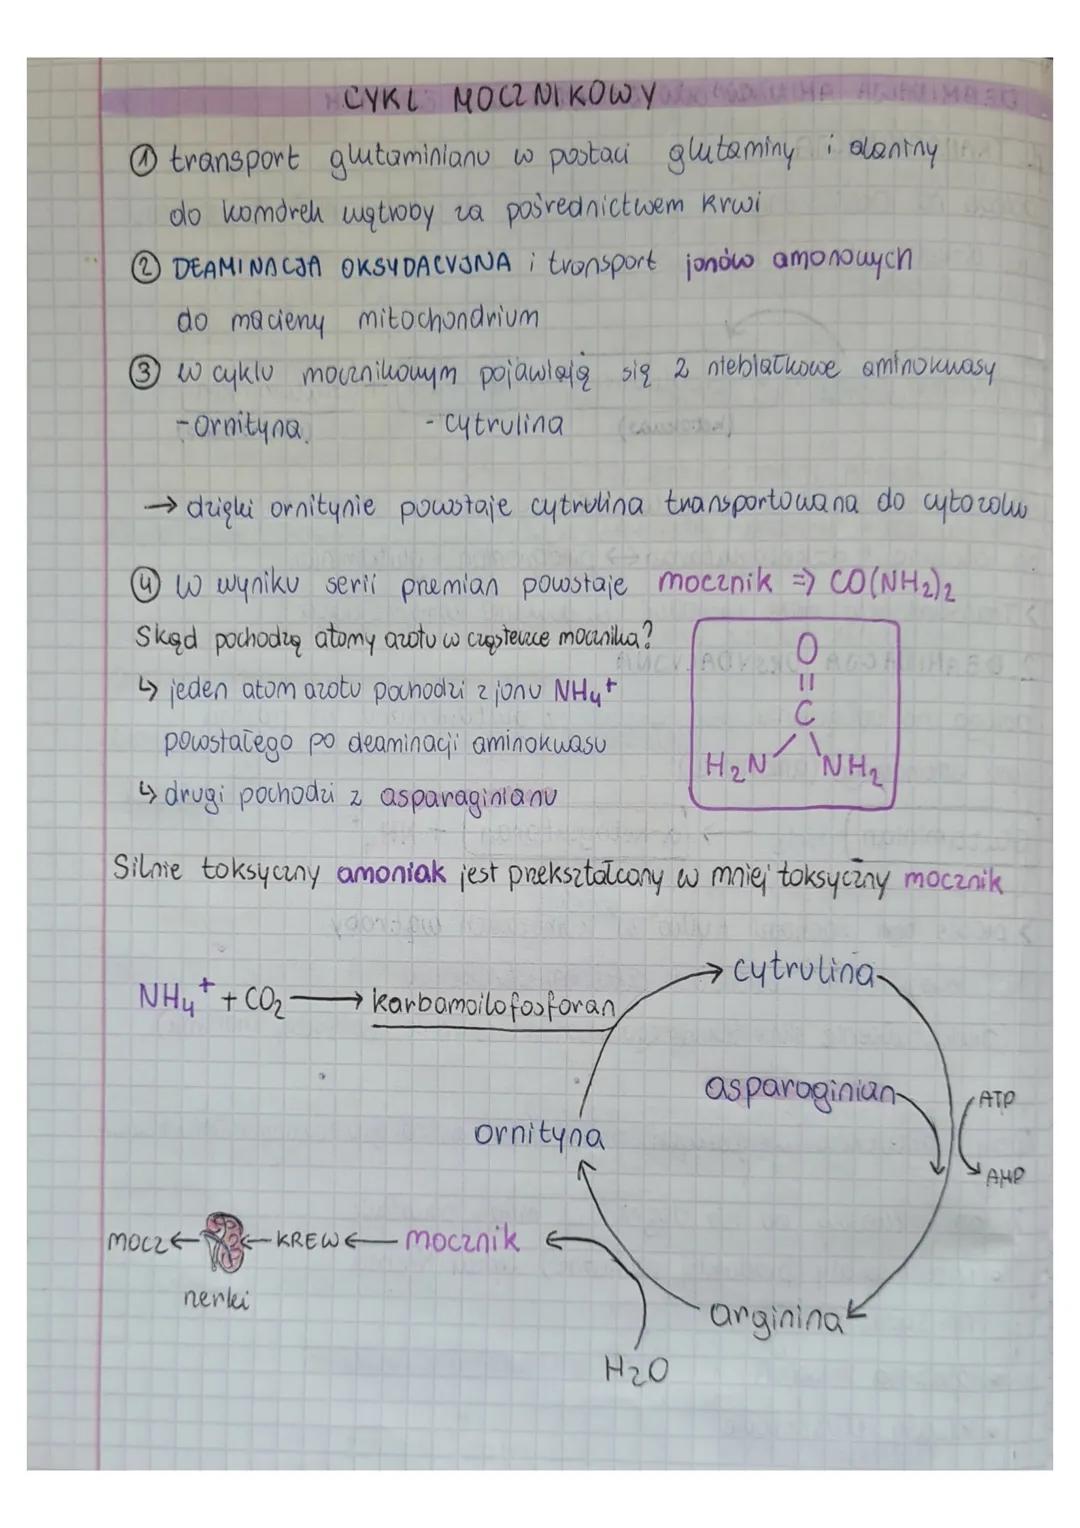 CYKL MOCZNIKOWY
① transport glutaminianu w postaci glutaminy i alaniny
do komórek wątroby za pośrednictwem krwi
② DEAMINACJA OKSYDACYJNA i transport jonów amonowych
do macierzy mitochondrium
③ W cyklu mocznikowym pojawiają się 2 niebiałkowe aminokwasy
- Ornityna - cytrulina
→ dzięki ornitynie powstaje cytrulina transportowana do cytozolu
④ W wyniku serii przemian powstaje mocznik => CO(NH₂)₂
Skąd pochodzą atomy azotu w cząsteczce mocznika?
↳ jeden atom azotu pochodzi z jonu NH₄⁺
powstałego po deaminacji aminokwasu
↳ drugi pochodzi z asparaginianu
O
C
H₂N NH₂
Silnie toksyczny amoniak jest przekształcany w mniej toksyczny mocznik
NH₄⁺ + CO₂ → karbamoilofosforan
cytrulina
asparaginian
ATP
AMP
ornityna
mocz ← KREW ← mocznik
nerki
arginina
H₂O